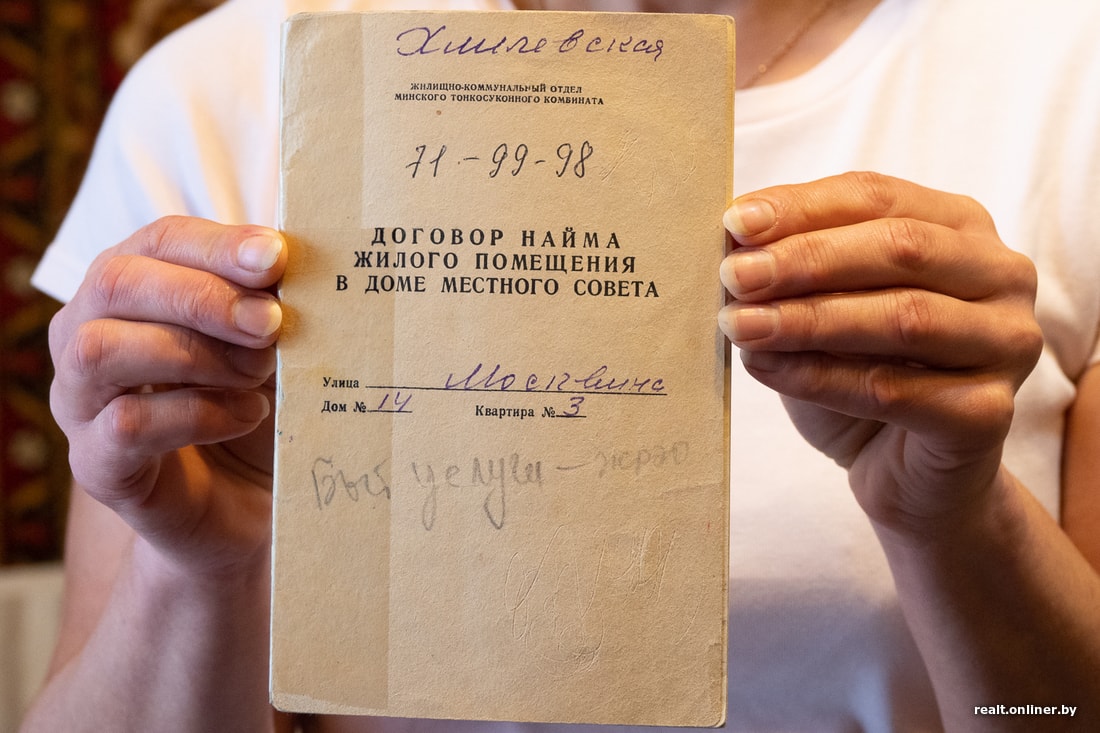 Хмилевская
ЖИЛИЩНО-КОММУНАЛЬНЫЙ ОТДЕЛ
МИНСКОГО ТОНКОСУКОННОГО КОМБИНАТА
71-99-98
ДОГОВОР НАЙМА
ЖИЛОГО ПОМЕЩЕНИЯ
В ДОМЕ МЕСТНОГО СОВЕТА
Улица Москвина
Дом № 14 Квартира № 3
Быт услуги –
realt.onliner.by